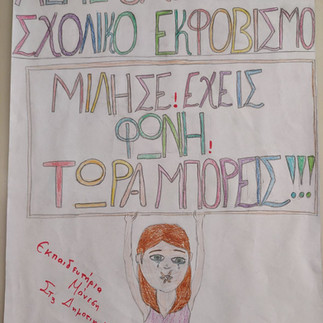 ΣΧΟΛΙΚΟ ΕΚΦΟΒΙΣΜΟ
ΜΙΛΗΣΕ! ΕΧΕΙΣ
ΦΩΝΗ!
ΤΩΡΑ ΜΠΟΡΕΙΣ!!!
Εκπαιδευτήρια
Μάνεση
Στ2 Δημοτικ